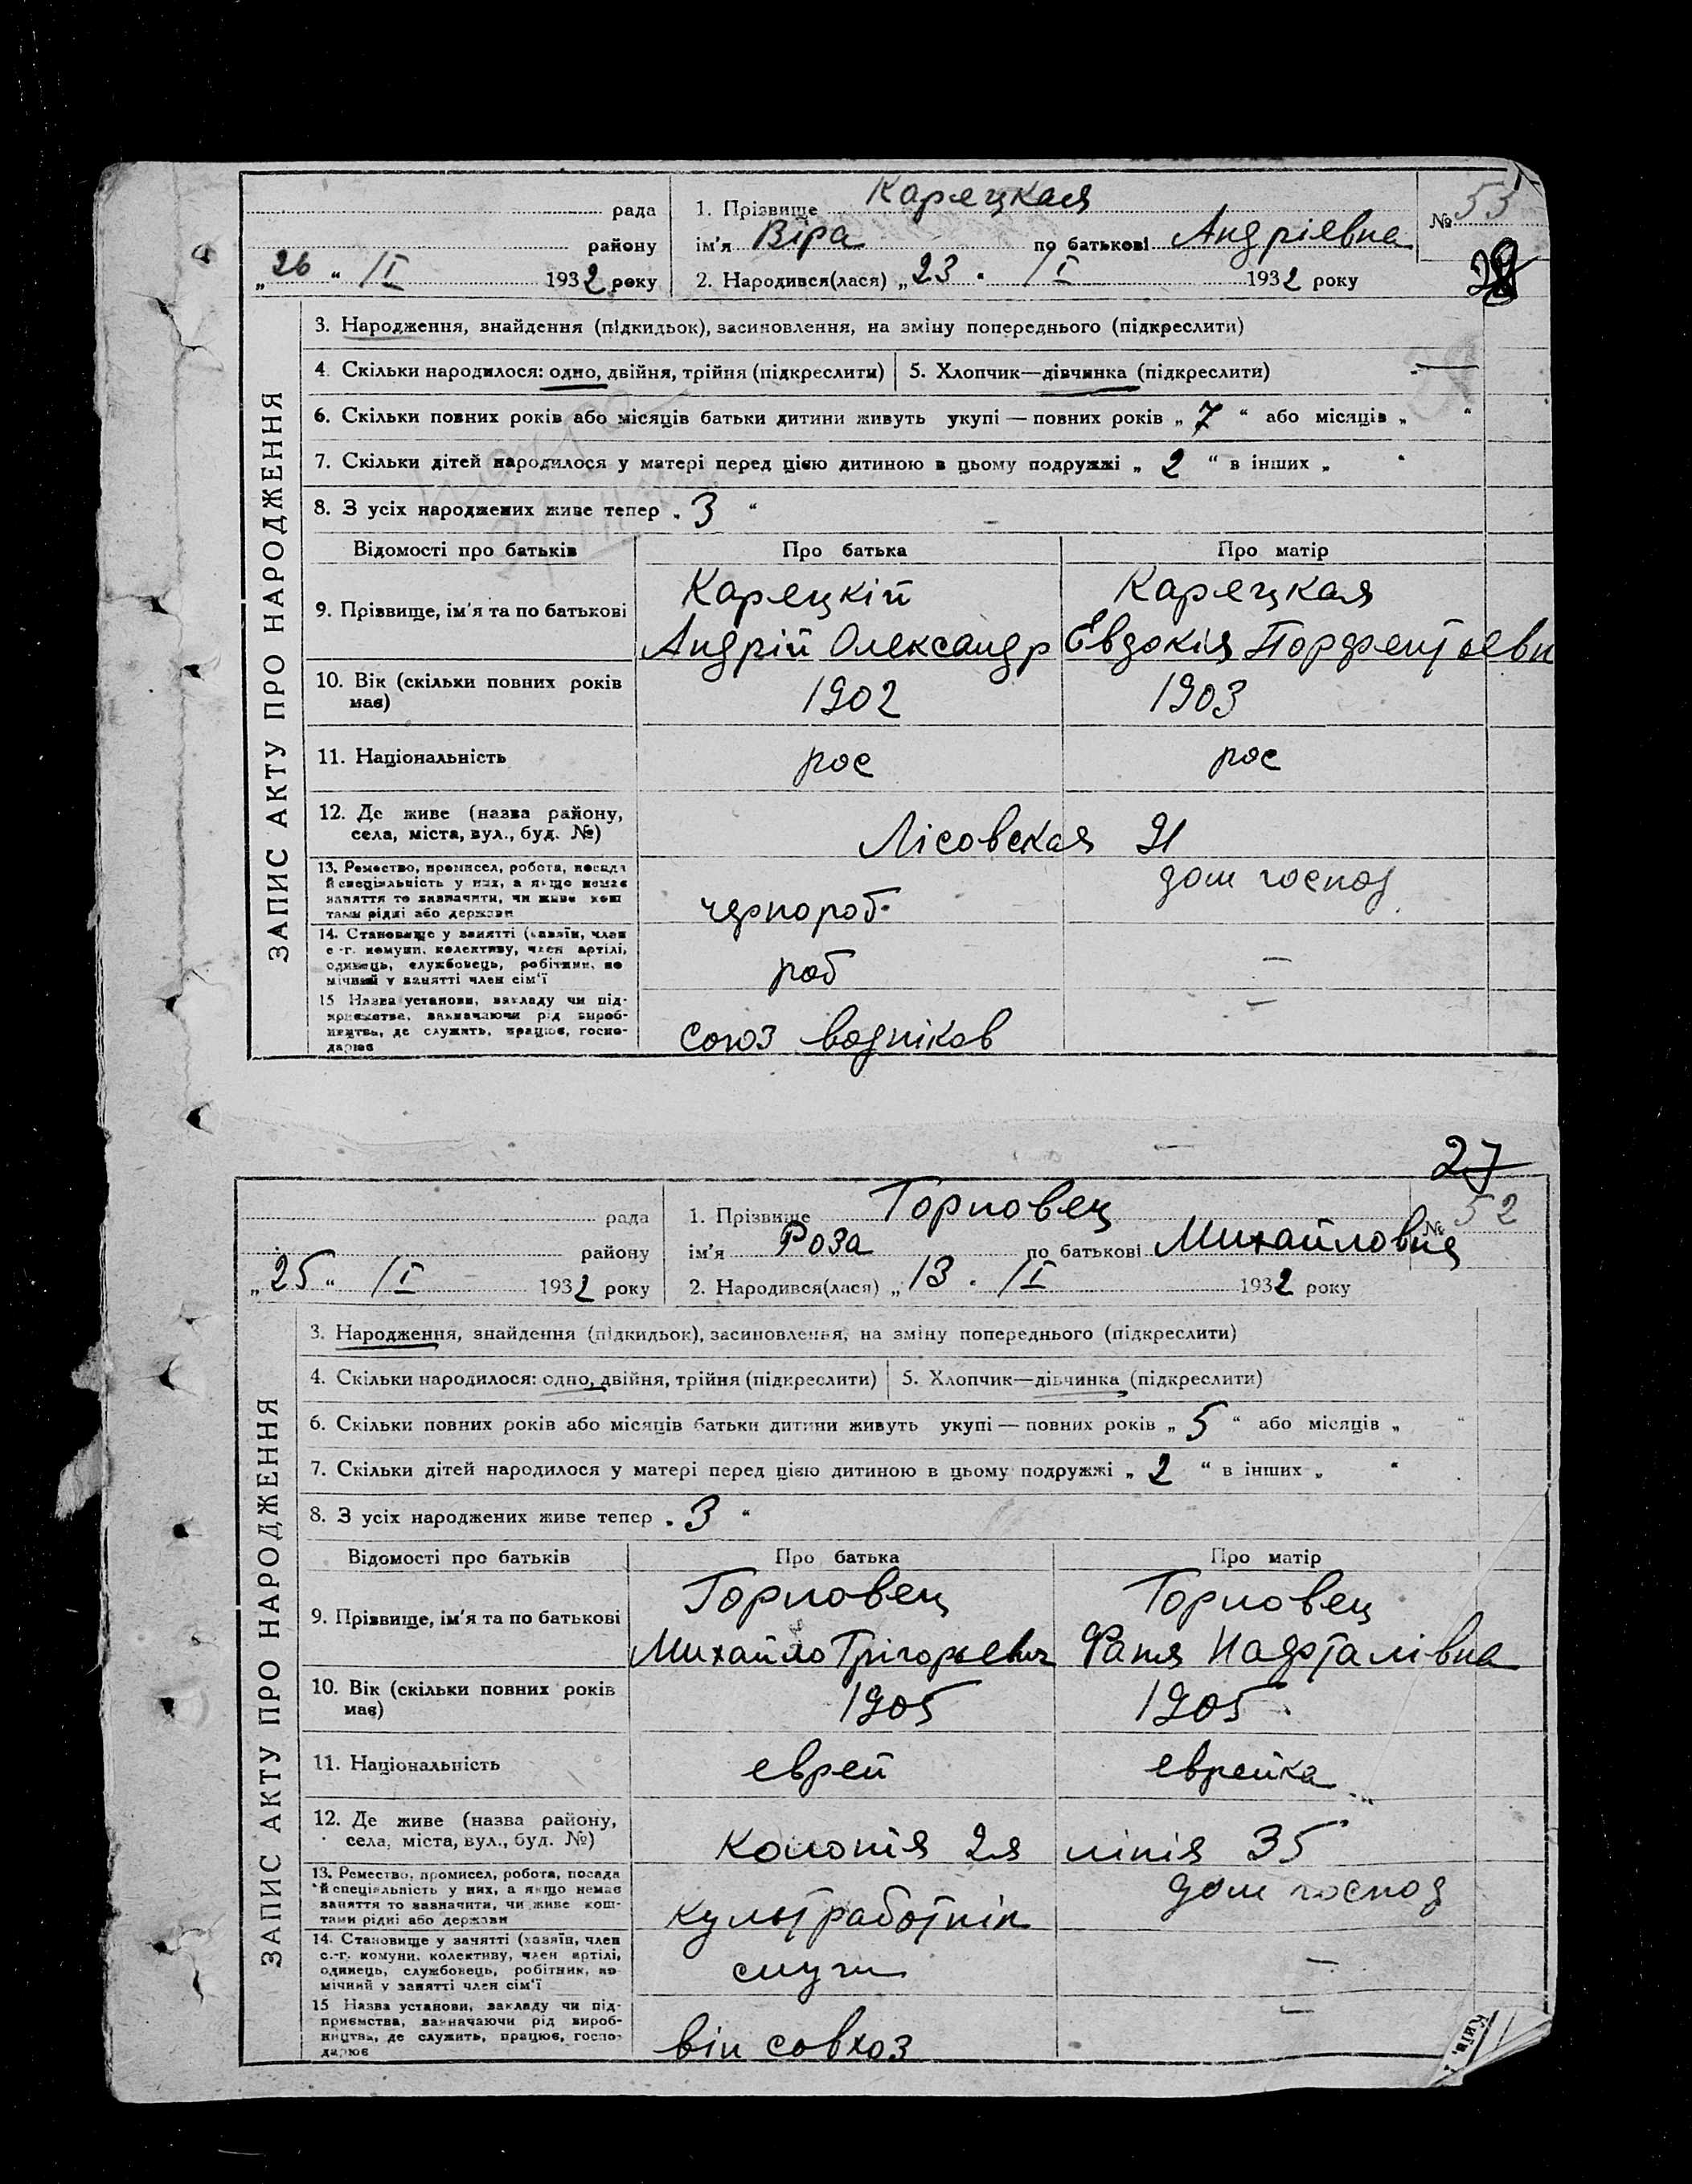 рада
району
„26“ /I 1932 року
1. Прізвище Карецкая
ім'я Віра по батькові Андріевна
2. Народився(лася) „23. /I 1932 року
№ 53
28
ЗАПИС АКТУ ПРО НАРОДЖЕННЯ
3. Народження, знайдення (підкидьок), засиновлення, на зміну попереднього (підкреслити)
4. Скільки народилося: одно, двійня, трійня (підкреслити) 5. Хлопчик—дівчинка (підкреслити)
6. Скільки повних років або місяців батьки дитини живуть укупі — повних років „7“ або місяців „ “
7. Скільки дітей народилося у матері перед цією дитиною в цьому подружжі „2“ в інших „ “
8. З усіх народжених живе тепер „3“
Відомості про батьків Про батька Про матір
9. Прізвище, ім'я та по батькові
Карецкій Карецкая
Андрій Олександр Евдокія Порфентьевн
10. Вік (скільки повних років має) 1902 1903
11. Національність рос рос
12. Де живе (назва району, села, міста, вул., буд. №) Лісовская 21
13. Ремество, промисел, робота, посада й спеціяльність у них, а якщо немає заняття то зазначити, чи живе коштами рідні або держави
чернороб. дом господ
14. Становище у занятті (хазяїн, член с.-г. комуни, колективу, член артілі, одинець, службовець, робітник, помічний у занятті член сім'ї
роб —
15 Назва установи, закладу чи підприємства, зазначаючи рід виробництва, де служить, працює, господарює
союз водніков —
27
рада
району
„25“ /I 1932 року
1. Прізвище Горловец
ім'я Роза по батькові Михайловна
2. Народився(лася) „13. /I 1932 року
№ 52
ЗАПИС АКТУ ПРО НАРОДЖЕННЯ
3. Народження, знайдення (підкидьок), засиновлення, на зміну попереднього (підкреслити)
4. Скільки народилося: одно, двійня, трійня (підкреслити) 5. Хлопчик—дівчинка (підкреслити)
6. Скільки повних років або місяців батьки дитини живуть укупі — повних років „5“ або місяців „ “
7. Скільки дітей народилося у матері перед цією дитиною в цьому подружжі „2“ в інших „ “
8. З усіх народжених живе тепер „3“
Відомості про батьків Про батька Про матір
9. Прізвище, ім'я та по батькові
Горловец Горловец
Михайло Грігорьевич Фаня Нафталівна
10. Вік (скільки повних років має) 1905 1905
11. Національність еврей еврейка
12. Де живе (назва району, села, міста, вул., буд. №) Колонія 2я лінія 35
13. Ремество, промисел, робота, посада й спеціяльність у них, а якщо немає заняття то зазначити, чи живе коштами рідні або держави
культработнік дом господ
14. Становище у занятті (хазяїн, член с.-г. комуни, колективу, член артілі, одинець, службовець, робітник, помічний у занятті член сім'ї
служ —
15 Назва установи, закладу чи підприємства, зазначаючи рід виробництва, де служить, працює, господарює
він совхоз —
Київ.